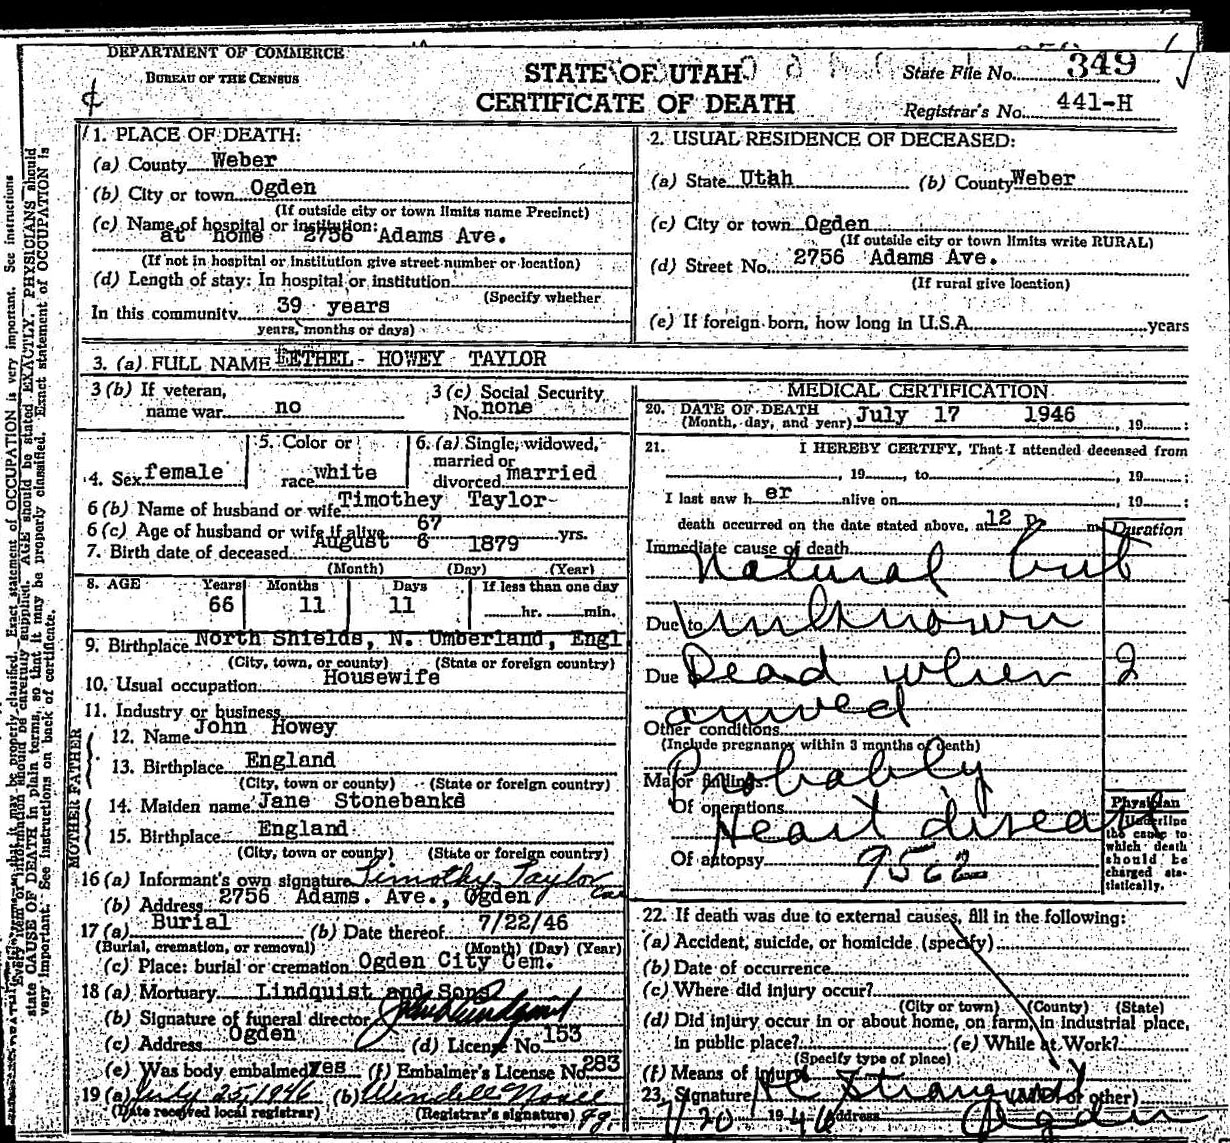 DEPARTMENT OF COMMERCE
BUREAU OF THE CENSUS
STATE OF UTAH
CERTIFICATE OF DEATH
State File No. 349
Registrar's No. 441-H
1. PLACE OF DEATH:
(a) County Weber
(b) City or town Ogden
(If outside city or town limits name Precinct)
(c) Name of hospital or institution:
at home 2756 Adams Ave.
(If not in hospital or institution give street number or location)
(d) Length of stay: In hospital or institution
(Specify whether
In this community 39 years
years, months or days)
2. USUAL RESIDENCE OF DECEASED:
(a) State Utah (b) County Weber
(c) City or town Ogden
(If outside city or town limits write RURAL)
(d) Street No. 2756 Adams Ave.
(If rural give location)
(e) If foreign born, how long in U.S.A. years
3. (a) FULL NAME ETHEL HOWEY TAYLOR
3 (b) If veteran,
name war no
3 (c) Social Security
No. none
4. Sex female
5. Color or
race white
6. (a) Single, widowed,
married or
divorced married
6 (b) Name of husband or wife Timothey Taylor
6 (c) Age of husband or wife if alive 67 yrs.
7. Birth date of deceased August 6 1879
(Month) (Day) (Year)
8. AGE Years Months Days If less than one day
66 11 11 hr. min.
9. Birthplace North Shields, N. Umberland, Engl
(City, town, or county) (State or foreign country)
10. Usual occupation Housewife
11. Industry or business
FATHER
12. Name John Howey
13. Birthplace England
(City, town or county) (State or foreign country)
MOTHER
14. Maiden name Jane Stonebanks
15. Birthplace England
(City, town or county) (State or foreign country)
16 (a) Informant's own signature Timothy Taylor
(b) Address 2756 Adams. Ave., Ogden
17 (a) Burial (b) Date thereof 7/22/46
(Burial, cremation, or removal) (Month) (Day) (Year)
(c) Place: burial or cremation Ogden City Cem.
18 (a) Mortuary Lindquist and Sons
(b) Signature of funeral director
(c) Address Ogden (d) License No. 153
(e) Was body embalmed yes (f) Embalmer's License No. 283
19 (a) July 25, 1946 (b) Wendell
(Date received local registrar) (Registrar's signature)
MEDICAL CERTIFICATION
20. DATE OF DEATH
(Month, day, and year) July 17 1946, 19
21. I HEREBY CERTIFY, That I attended deceased from
, 19 , to , 19 ;
I last saw her alive on , 19 ;
death occurred on the date stated above, at 12 p m
Duration
Immediate cause of death
Natural but
Due to Unknown
Due Dead when 2
arrived
Other conditions
(Include pregnancy within 3 months of death)
Probably
Major findings:
Of operations Heart disease
Of autopsy 95c2
Physician
Underline
the cause to
which death
should be
charged sta-
tistically.
22. If death was due to external causes, fill in the following:
(a) Accident, suicide, or homicide (specify)
(b) Date of occurrence
(c) Where did injury occur?
(City or town) (County) (State)
(d) Did injury occur in or about home, on farm, in industrial place,
in public place? (e) While at Work?
(Specify type of place)
(f) Means of injury
23. Signature
7/20 1946 Address Ogden